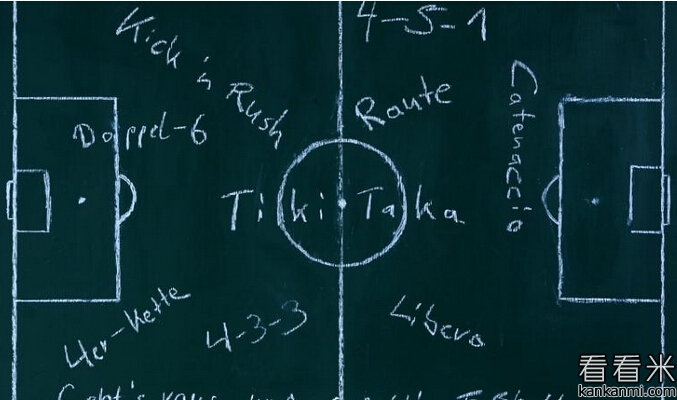 4-5-1
Kick'n Rush
Raute
Catenaccio
Doppel-6
Tiki Taka
4er-Kette
4-3-3
Libero
看看米
kankanmi.com